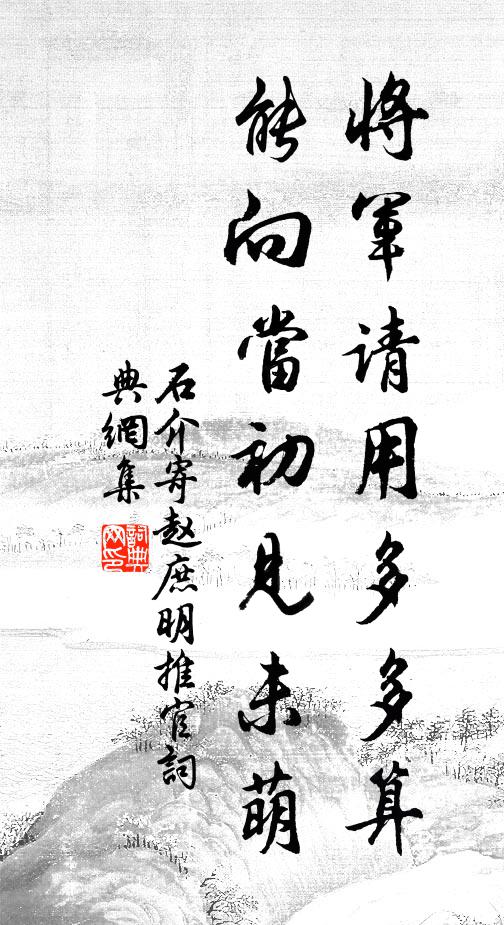 將軍请用多多算
能向當初見未萌
石介寄赵庶明推官詞
典網集
詞典网印